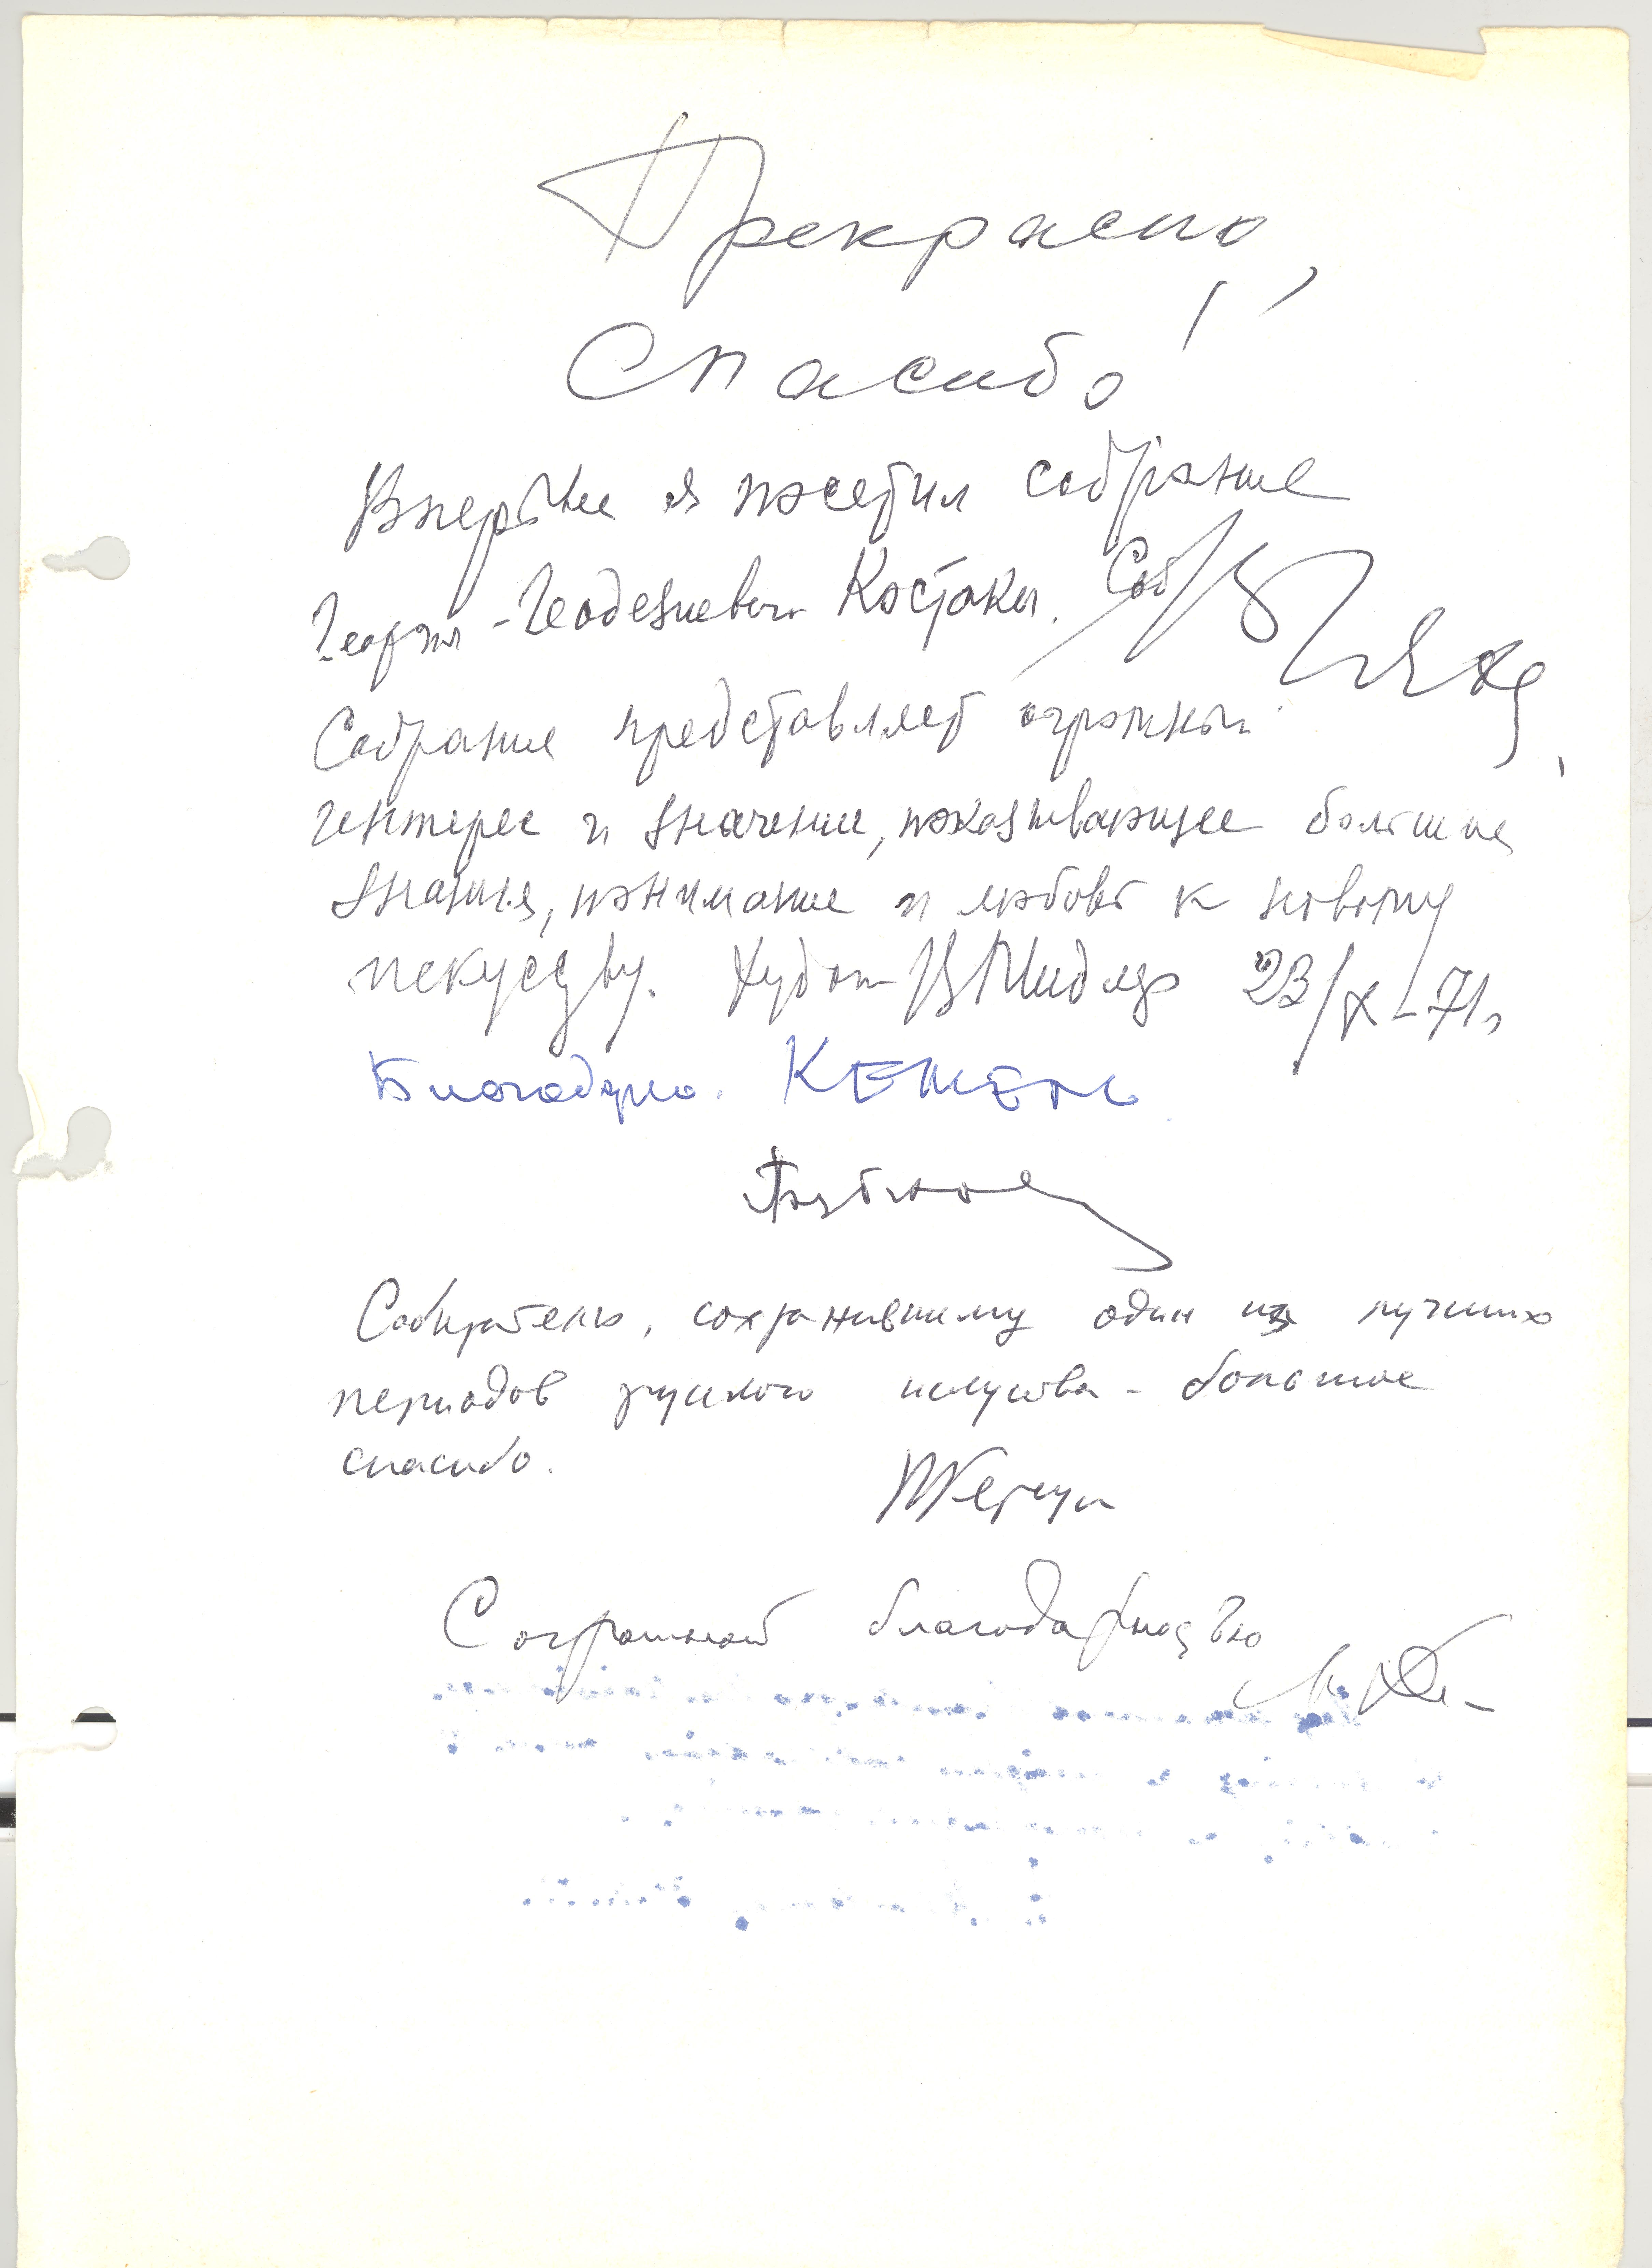 Прекрасно,
Спасибо!
Впервые я посетил собрание
Георгия Костаки. Соб
Собрание представляет огромный
интерес и значение, показывающее большие
знания, понимание и любовь к новому
искусству. Худож 23/X–71г
Благодарю.
Собирателю, сохранившему один из лучших
периодов русского искусства – большое
спасибо.
С огромной благодарностью